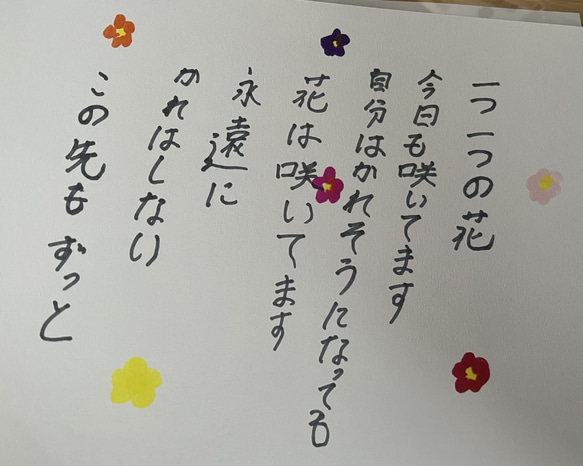 一つ一つの花
今日も咲いてます
自分はかれそうになっても
花は咲いてます
永遠に
かれはしない
この先もずっと